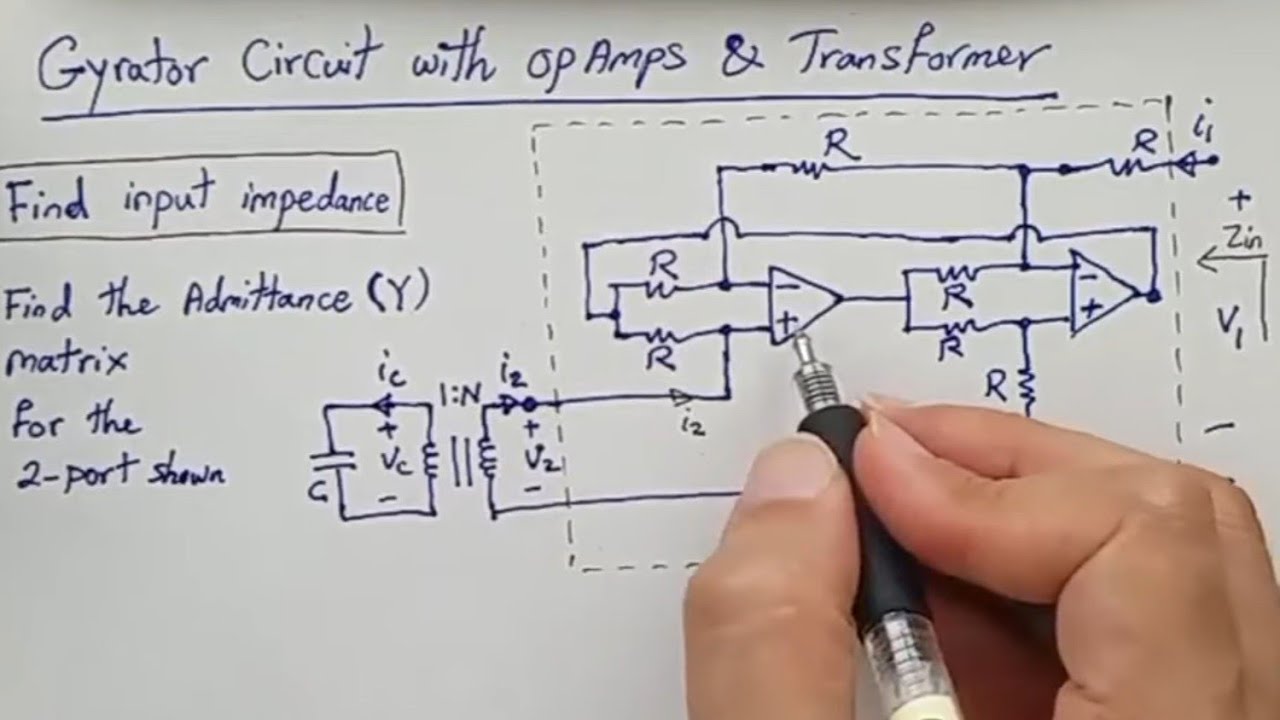 Gyrator Circuit with opAmps & Transformer
Find input impedance
Find the Admittance (Y)
matrix
for the
2-port shown
R
R
i1
+
Zin
V1
-
R
R
-
+
R
R
-
+
R
ic
1:N
i2
i2
+
Vc
-
+
V2
-
C